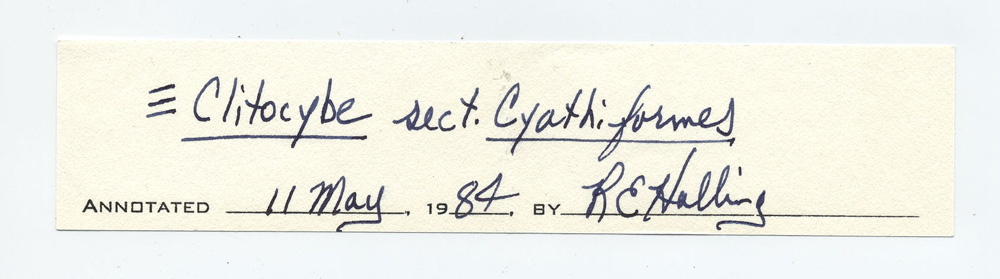 ≡ Clitocybe sect. Cyathiformes
ANNOTATED 11 May, 1984, BY R E Halling